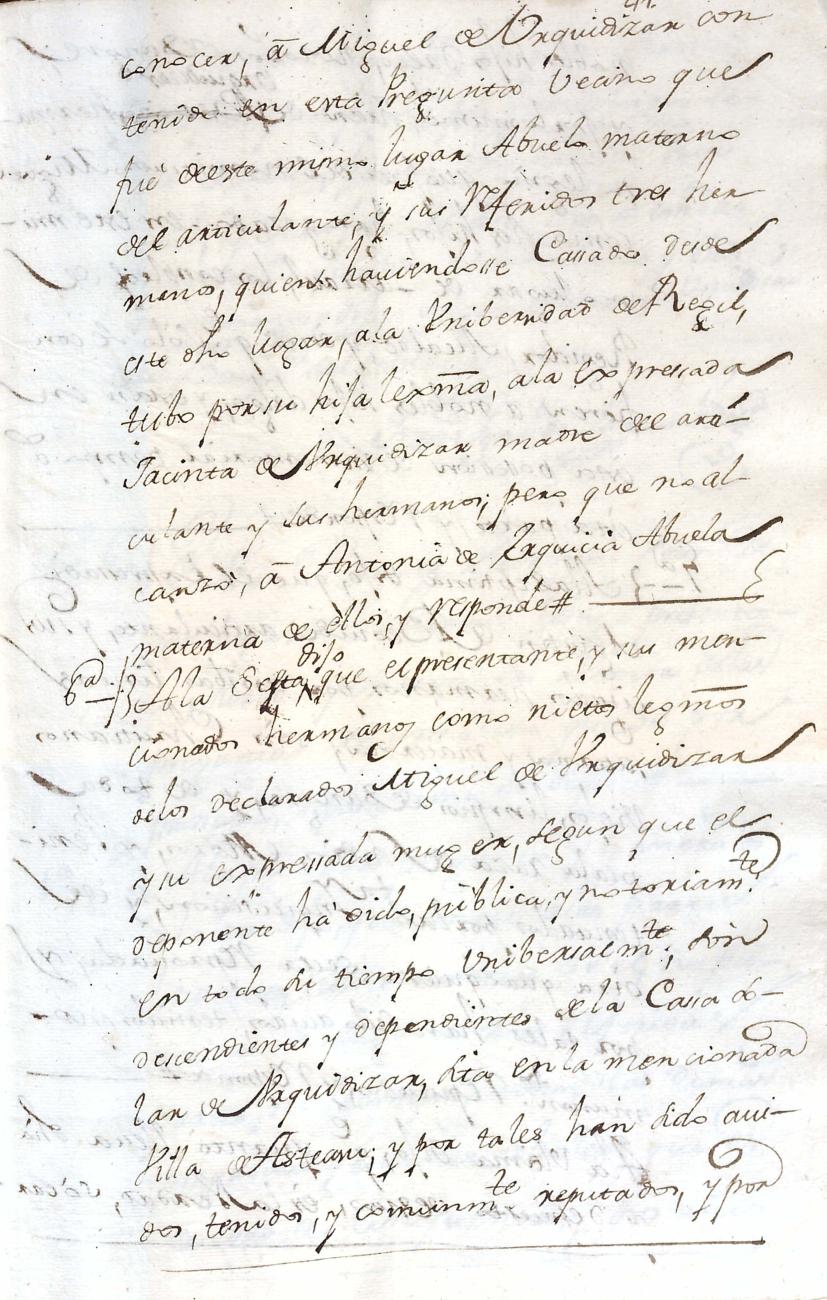 41.
conocer, â Miguel de Urquidizar con
tenido en esta Pregunta Vecino que
fue deeste mismo lugar Abuelo materno
del articulante, y sus Referidos tres her
manos, quien haviendose Cassado desde
este dho lugar, ala Vnibersidad de Regil,
tubo por su hija lexma, ala expressada
Jacinta de Vrquidizar madre del arti-
culante y sus hermanos; pero que no al
canzo, â Antonia de Erquicia Abuela
materna de ellos, y responde #
6ª Ala Sesta dijo que el presentante, y sus men-
cionados hermanos como nietos legmos
delos declarados Miguel de Vrquidizar
y su expressada muger, segun que el
deponente ha oido, publica, y notoriamte
en todo su tiempo Unibersalmte, son
descendientes y dependientes de la Cassa so-
lar de Vrquidizar, sita en la mencionada
Villa de Asteasu; y por tales han sido avi-
dos, tenidos, y comunmte reputados, y por